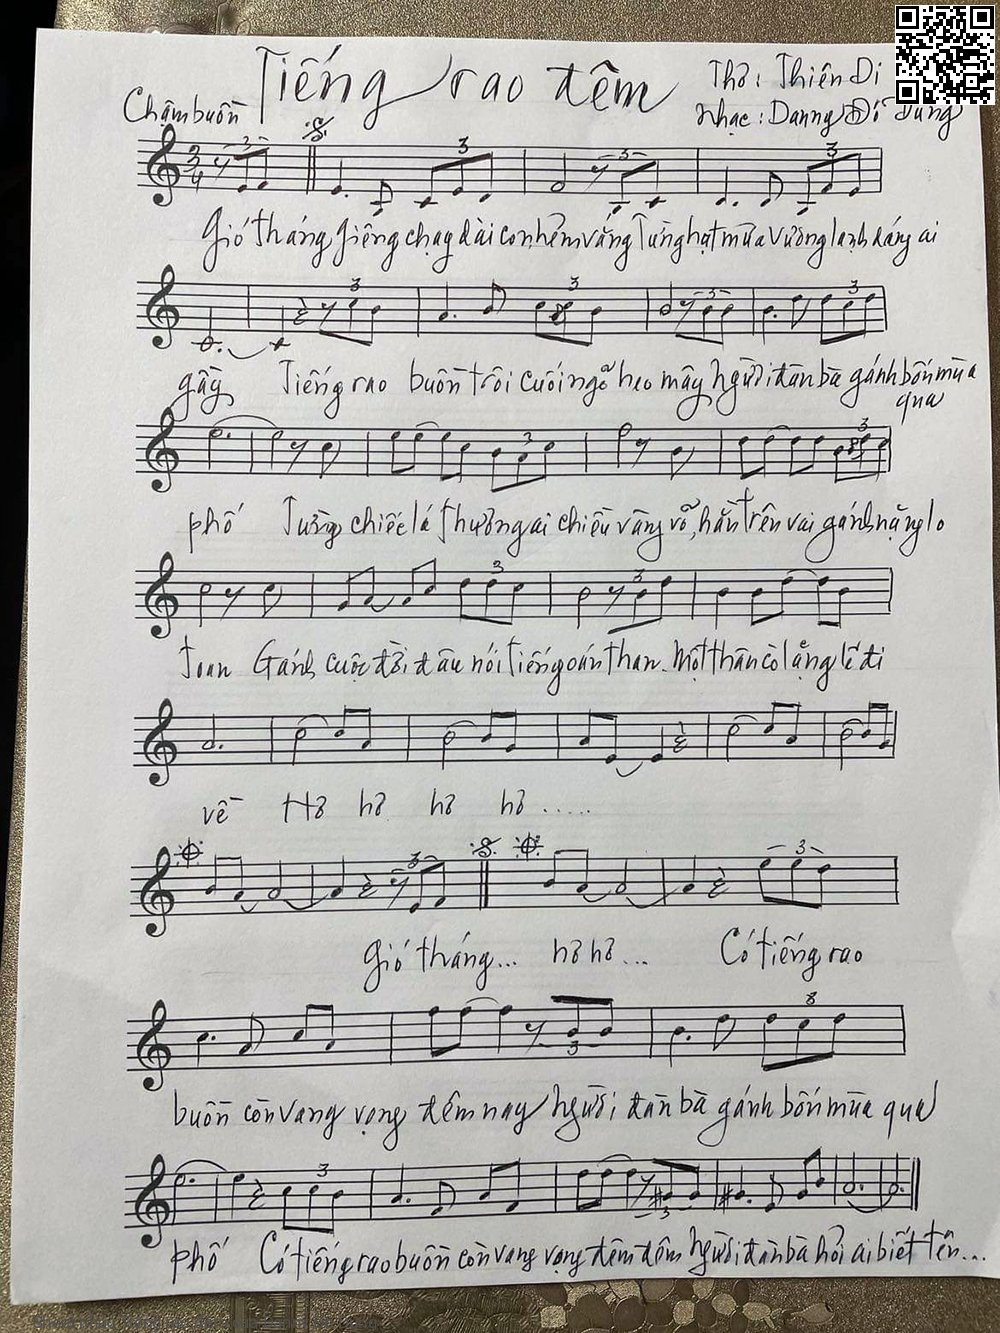 Tiếng rao đêm
Thơ: Thiên Di
Chậm buồn
Nhạc: Danny Đỗ Dũng
Gió tháng giêng chạy dài con hẻm vắng Từng hạt mưa vương lạnh dáng ai
gầy Tiếng rao buồn trôi cuối ngõ heo mây người đàn bà gánh bốn mùa
qua
phố Tưởng chiếc lá thương ai chiều vàng vỡ, hằn trên vai gánh nặng lo
toan Gánh cuộc đời đâu nói tiếng oán than. Một thân cò lặng lẽ đi
về Hơ hơ hơ hơ .....
Gió tháng... hơ hơ ... Có tiếng rao
buồn còn vang vọng đêm nay người đàn bà gánh bốn mùa qua
phố Có tiếng rao buồn còn vang vọng đêm đêm Người đàn bà hỏi ai biết tên...